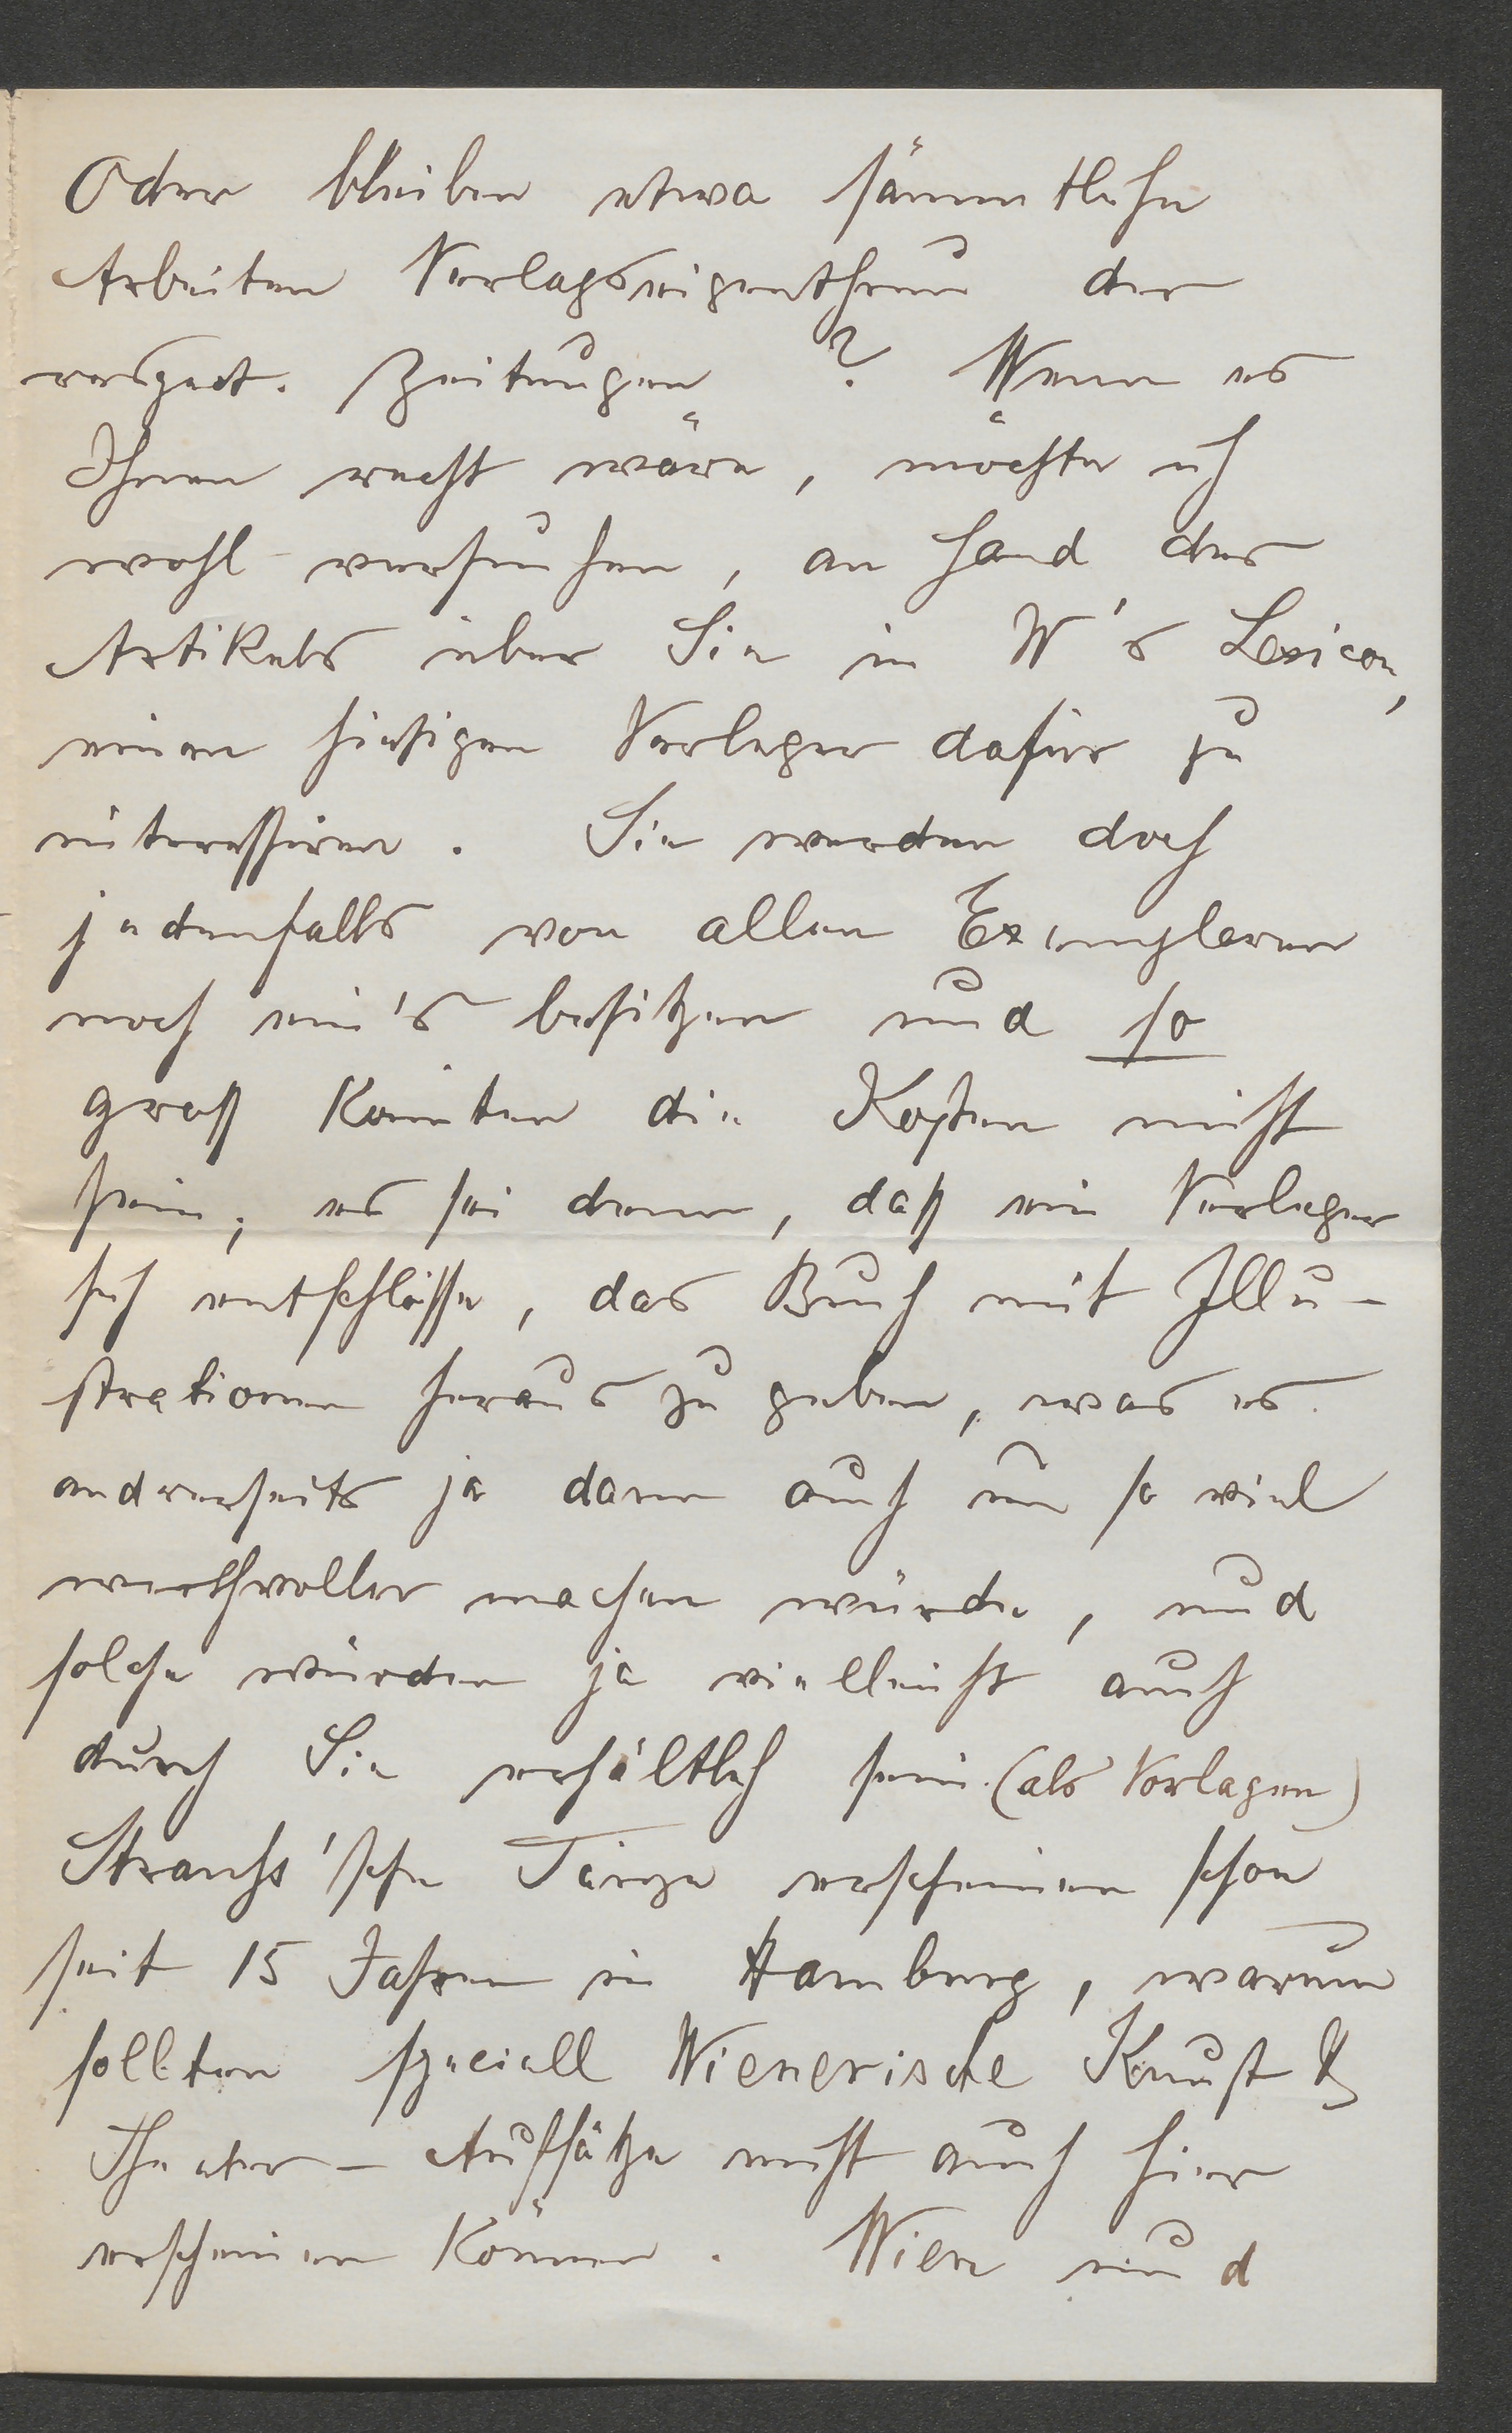 Oder bleiben etwa sämmtliche
Arbeiten Verlagseigenthum der
respect. Zeitungen? Wenn es
Ihnen recht wäre, möchte ich
wohl versuchen, an Hand des
Artikels über Sie in W's Lexicon,
einen hiesigen Verleger dafür zu
interessiren. Sie werden doch
jedenfalls von allen Exemplaren
noch ein's besitzen und so
groß könnten die Kosten nicht
sein, es sei denn, daß ein Verleger
sich entschlösse, das Buch mit Illu-
strationen heraus zu geben, was es
andrerseits ja dann auch um so viel
werthvoller machen würde, und
solche würden ja vielleicht auch
durch Sie erhältlich sein. (als Vorlagen)
Strauhs'sche Tänze erscheinen schon
seit 15 Jahren in Hamburg, warum
sollten speciell Wienerische Kunst &
Theater-Aufsätze nicht auch hier
erscheinen können. Wien und